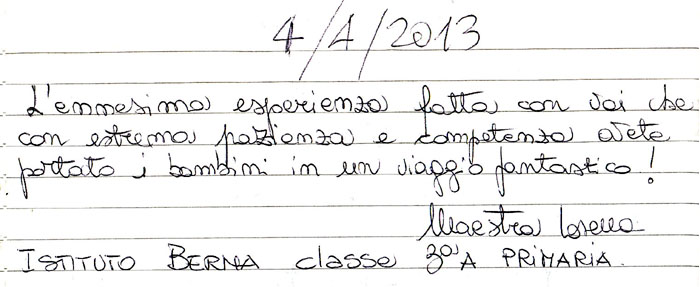 4/4/2013
L'ennesima esperienza fatta con voi che
con estrema pazienza e competenza avete
portato i bambini in un viaggio fantastico!
Maestra Lorella
ISTITUTO BERNA classe 3ª A PRIMARIA.